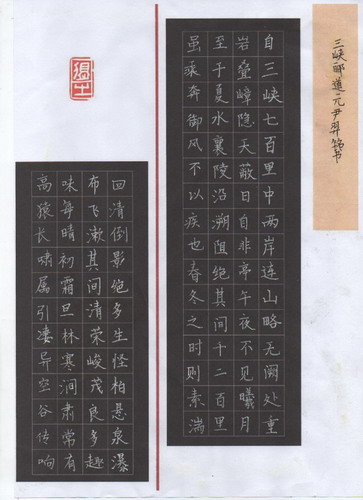 三峡郦道元尹羿书
自三峡七百里中两岸连山略无阙处重
岩叠嶂隐天蔽日自非亭午夜不见曦月
至于夏水襄陵沿溯阻绝其间千二百里
虽乘奔御风不以疾也春冬之时则素湍
回清倒影绝多生怪柏悬泉瀑
布飞漱其间清荣峻茂良多趣
味每晴初霜旦林寒涧肃常有
高猿长啸属引凄异空谷传响